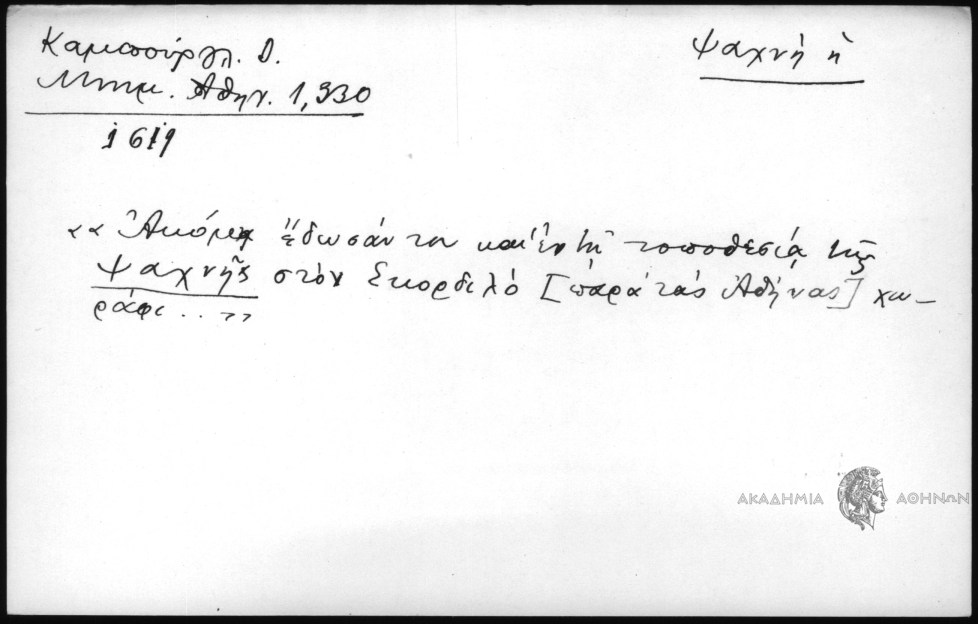 Καμπούρογλ. Δ.
Μνημ. Ἀθην. 1, 330
1611
Ψαχνή ἡ
«« Ἀκόμη ἔδωσάν του καί ἐν τῇ τοποθεσίᾳ τῆς
Ψαχνῆς στὸν Σκορδιλό [παρὰ τὰς Ἀθήνας] χω-
ράφι .. »»
ΑΚΑΔΗΜΙΑ ΑΘΗΝΩΝ